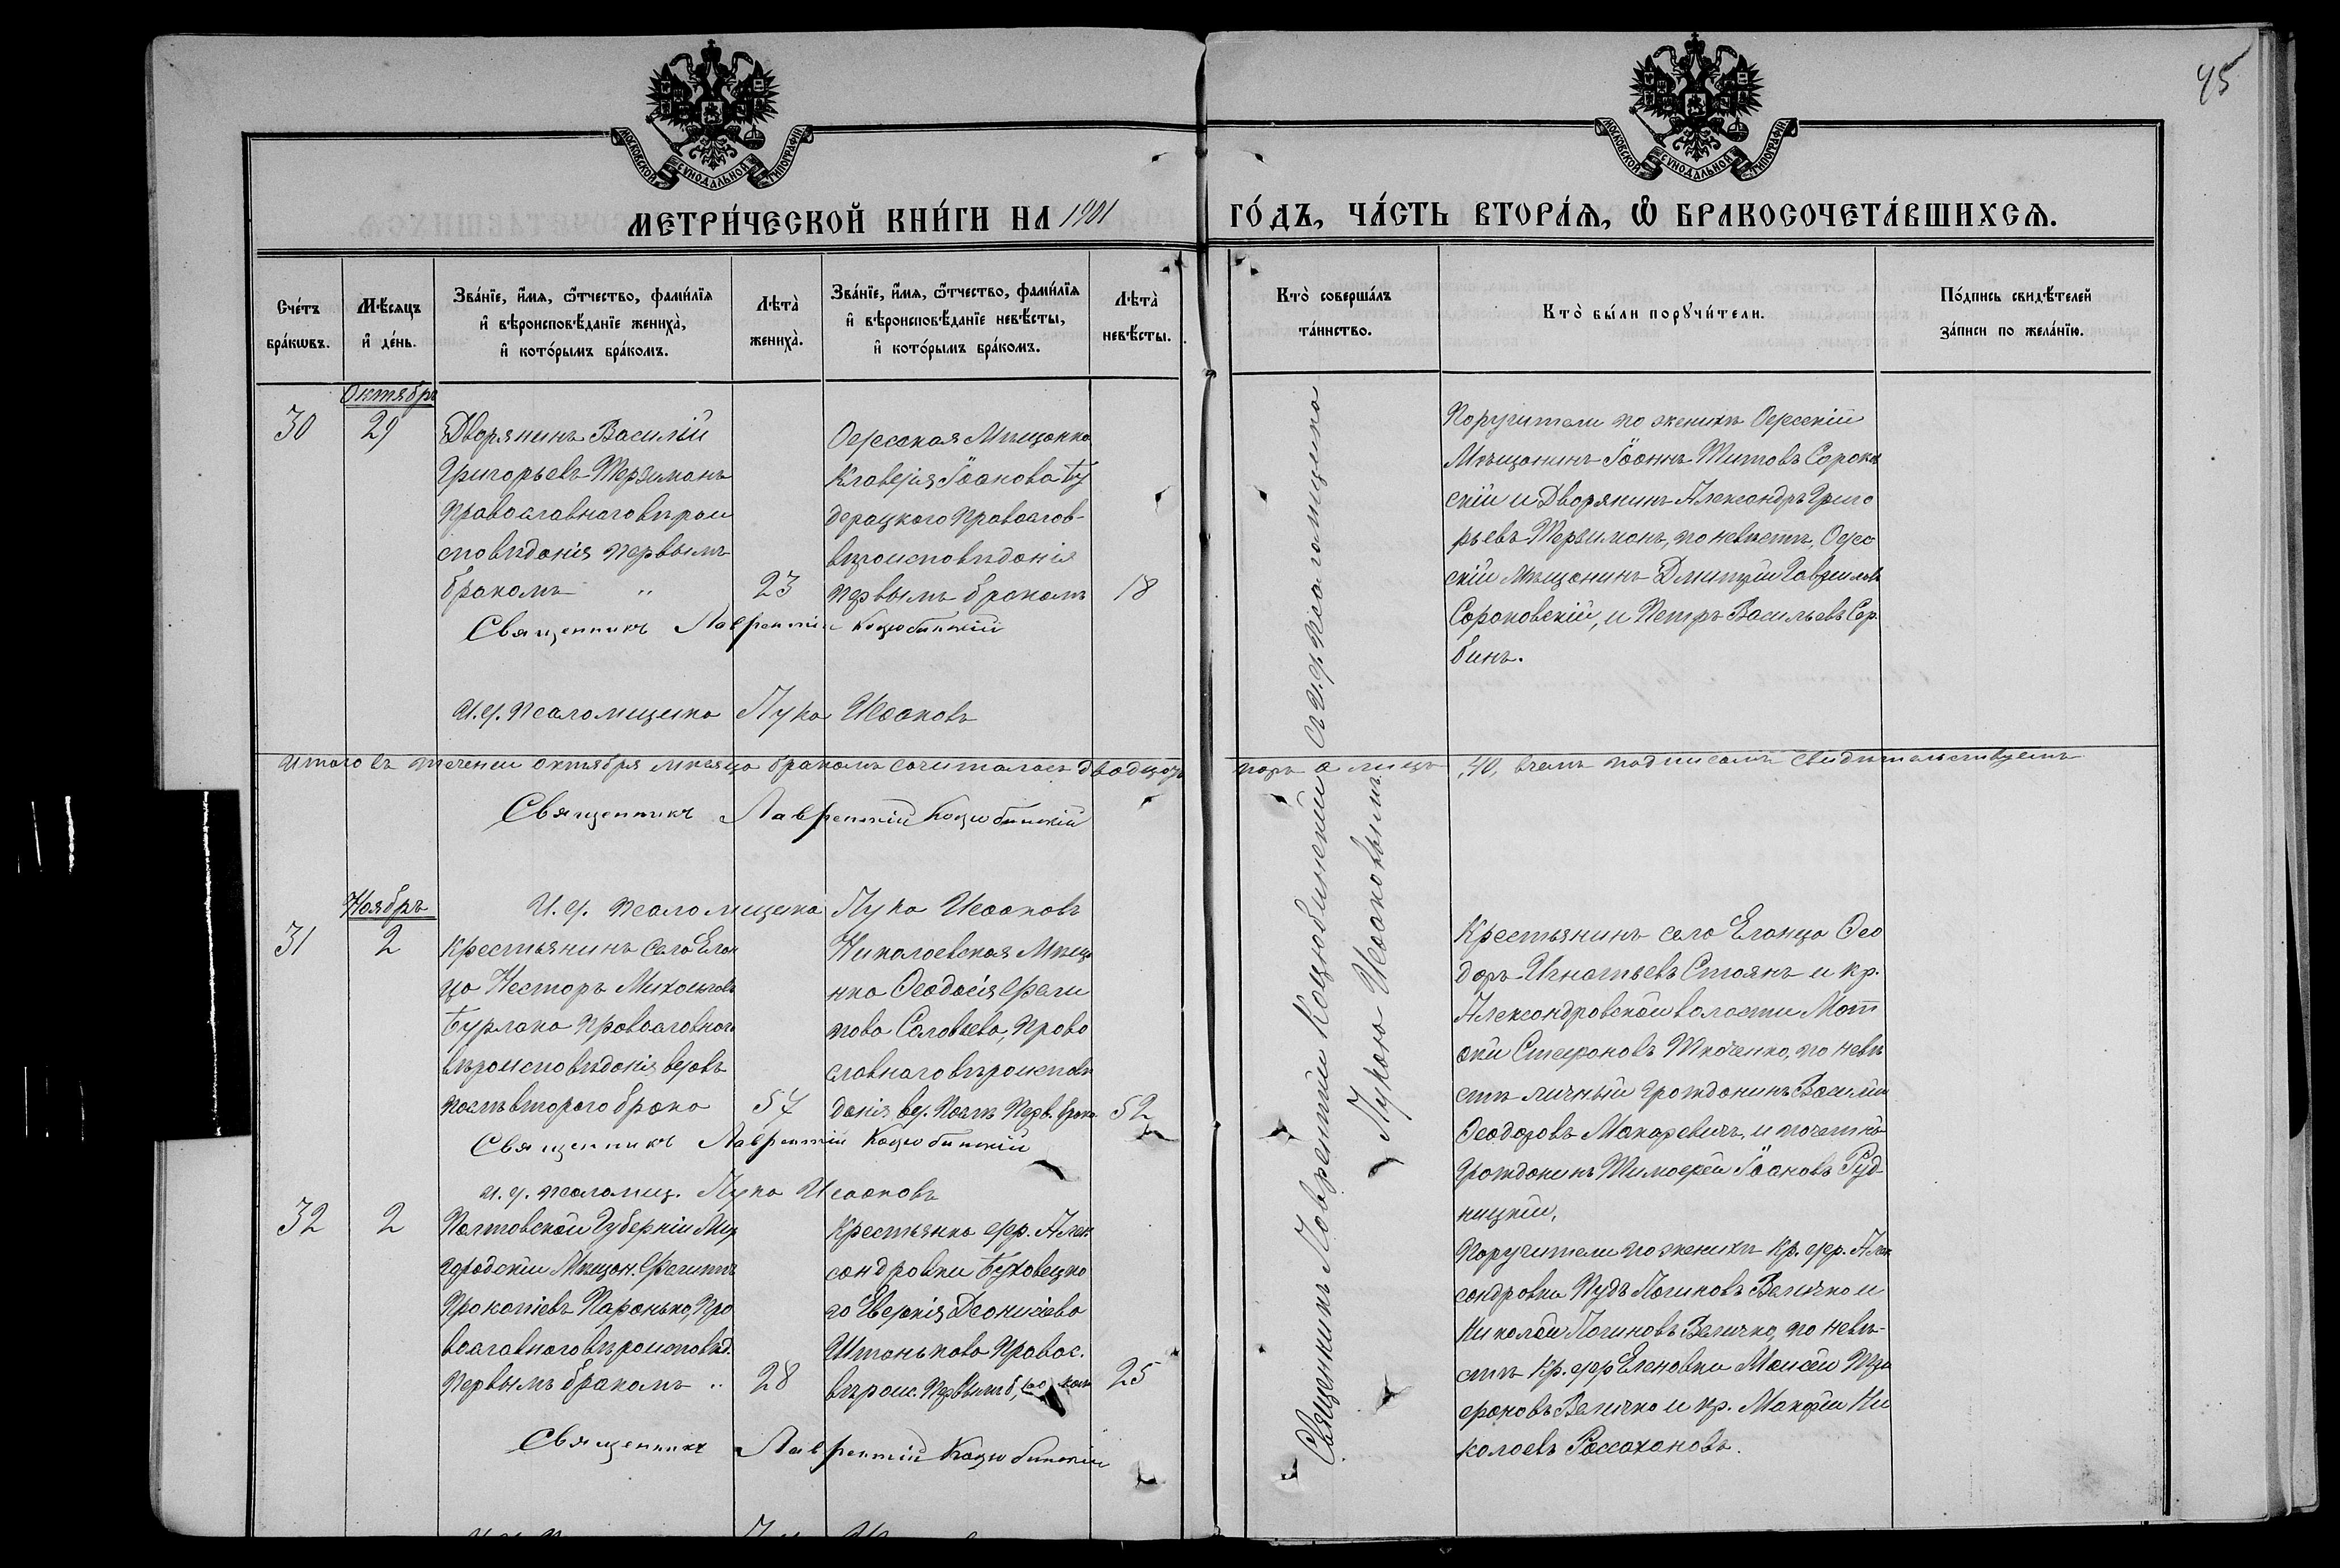 45
МОСКОВСКОЙ СѴНОДАЛЬНОЙ ТИПОГРАФІИ
МОСКОВСКОЙ СѴНОДАЛЬНОЙ ТИПОГРАФІИ
МЕТРИ́ЧЕСКОЙ КНИ́ГИ НА 1901 ГО́ДЪ, ЧА́СТЬ ВТОРА́Ѧ, Ѽ БРАКОСОЧЕТА́ВШИХСѦ.
Сче́тъ
бра́кѡвъ.
Мѣ́сяцъ
и҆ де́нь.
Зва́нїе, и҆́мя, ѻ҆́тчество, фами́лїя
и҆ вѣроисповѣ́данїе жениха̀,
и҆ кото́рымъ бра́комъ.
Лѣта̀
жениха̀.
Зва́нїе, и҆́мя, ѻ҆́тчество, фами́лїя
и҆ вѣроисповѣ́данїе невѣ́сты,
и҆ кото́рымъ бра́комъ.
Лѣта̀
невѣ́сты.
Кто̀ соверша́лъ
та́инство.
Кто̀ бы́ли порꙋчи́тели.
По́дпись свидѣ́телей
за́писи по жела́нїю.
Октябрь
30
29
Дворянинъ Василій
Григорьевъ Терзиманъ
Православнаго вѣрои
сповѣданія первымъ
бракомъ "
23
Одесская Мѣщанка
Клавдія Іоанова Бу
дерацкого Православ-
вѣроисповѣданія
первымъ бракомъ
18
Поручители по женихѣ Одесскій
Мѣщанинъ Іоаннъ Титовъ Сороко
скій и Дворянинъ Александръ Григо
рьевъ Терзиманъ, по невѣстѣ, Одес
скій мѣщанинъ Дмитрій Гавриловъ
Сороковскій, и Петръ Васильевъ Сер.
бинъ.
Священникъ Лаврентій Коцюбинскій
И.д. псаломщика Лука Исааковъ
Итого въ теченіи октября мѣсяца бракомъ сочиталось двадцать
паръ а лицъ, 40, вчемъ подписомъ свидѣтельствуемъ
Священникъ Лаврентій Коцюбинскій
И.д. псаломщика Лука Исааковъ
Ноябрь
31
2
Крестьянинъ село Елан
ца Несторъ Михаиловъ
Бурлака православнаго
вѣроисповѣданія вдовъ
послѣ второго брака
57
Николаевская Мѣща
нка Ѳеодосія Фили
пова Соловьева, Право
славнаго вѣроисповѣ
данія вд. послѣ перв. брака
52
Крестьянинъ село Еланца Ѳео
доръ Игнатьевъ Стоянъ и кр.
Александровской волости Мат
ѳей Стефановъ Ткаченко, по невѣ
стѣ личный гражданинъ Василій
Ѳеодоровъ Макаревичъ, и почетнъ
гражданинъ Тимофей Іоановъ Руд-
ницкій,
Священникъ Лаврентій Коцюбинскій
и.д. псаломщ. Лука Исааковъ
32
2
Полтовской Губерніи Мир
городскій Мѣщан. Филиппъ
Прокопіевъ Паронько, Пра
вославнаго вѣроисповѣд.
первымъ бракомъ "
28
Крестьянка дер. Алек
сандровки Буховецко
го Евдокія Деонисіева
Штанькова Правос.
вѣроис. первымъ б,
25
Поручители по женихѣ кр. дер. Алек
сандровки Пудъ Логиновъ Величко и
Николай Логиновъ Величко, по невѣ-
стѣ кр. дер Еленовки Моисей
Величко и кр. Макфій Ни
колаевъ Рассахановъ.
Священникъ Лаврентій Коцюбинскій
Священникъ Лаврентій Коцюбинскій съ и.д. псаломщика
Лукою Исааковымъ